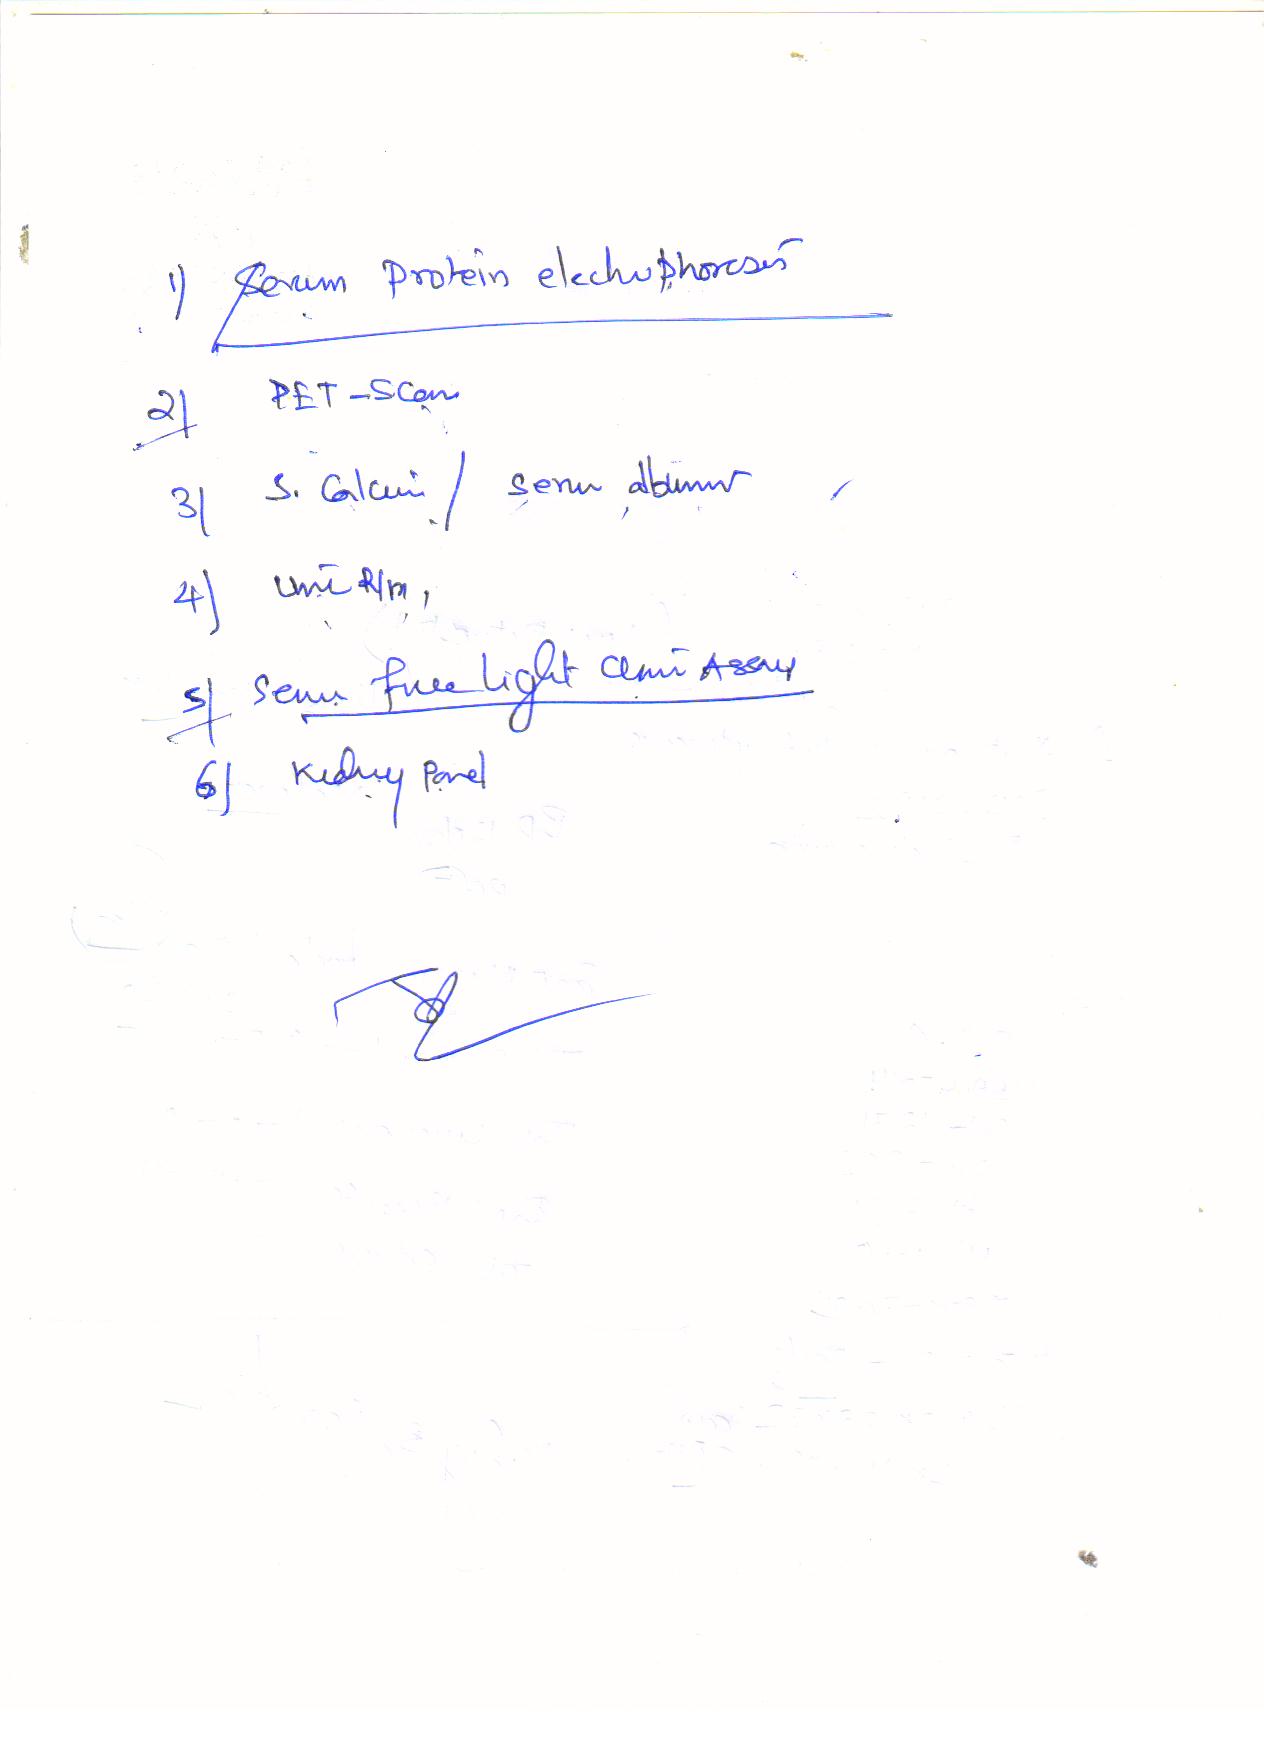 1) Serum Protein electrophoresis
2) PET-Scan
3) S. Calcium / Serum albumin
4) Urine R/m,
5) Serum free Light Chain Assay
6) Kidney Panel